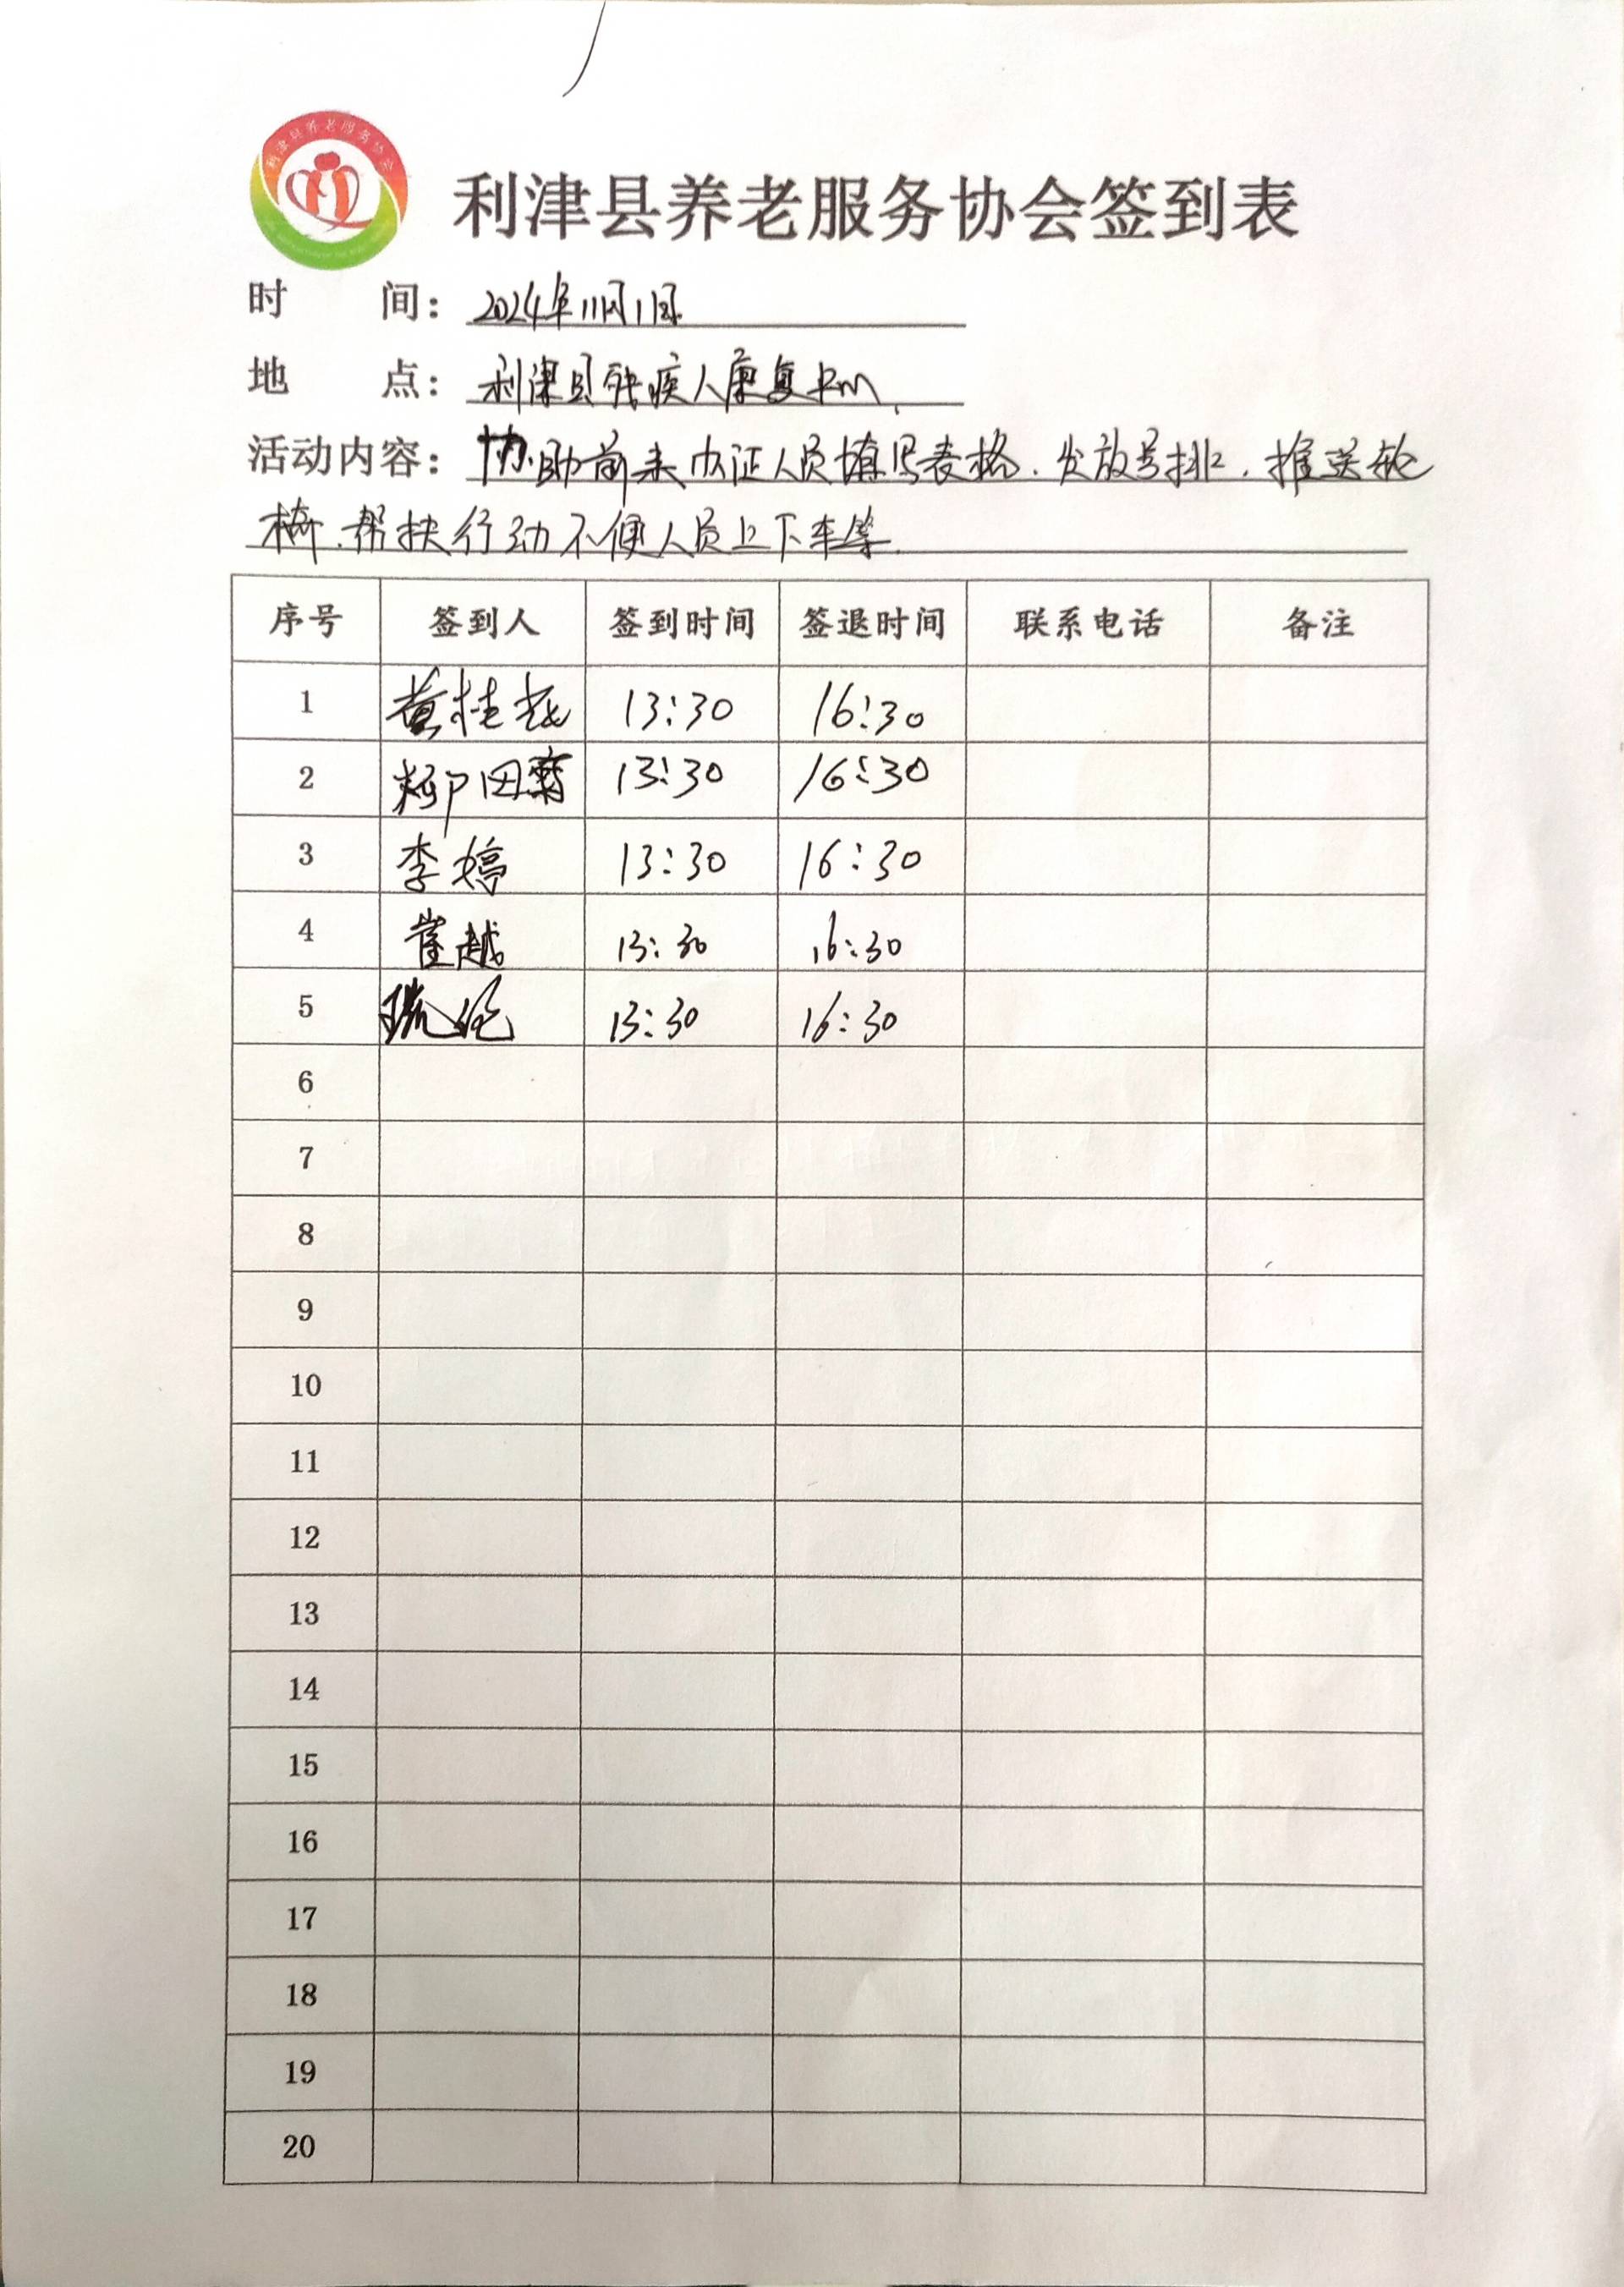 利津县养老服务协会
利津县养老服务协会签到表
时 间: 2024年11月1日
地 点: 利津县残疾人康复中心
活动内容: 协助前来办证人员填写表格、发放号排、推送轮
椅、帮扶行动不便人员上下车等.
序号 签到人 签到时间 签退时间 联系电话 备注
1 黄桂 13:30 16:30
2 柳田菊 13:30 16:30
3 李婷 13:30 16:30
4 崔越 13:30 16:30
5 13:30 16:30
6
7
8
9
10
11
12
13
14
15
16
17
18
19
20